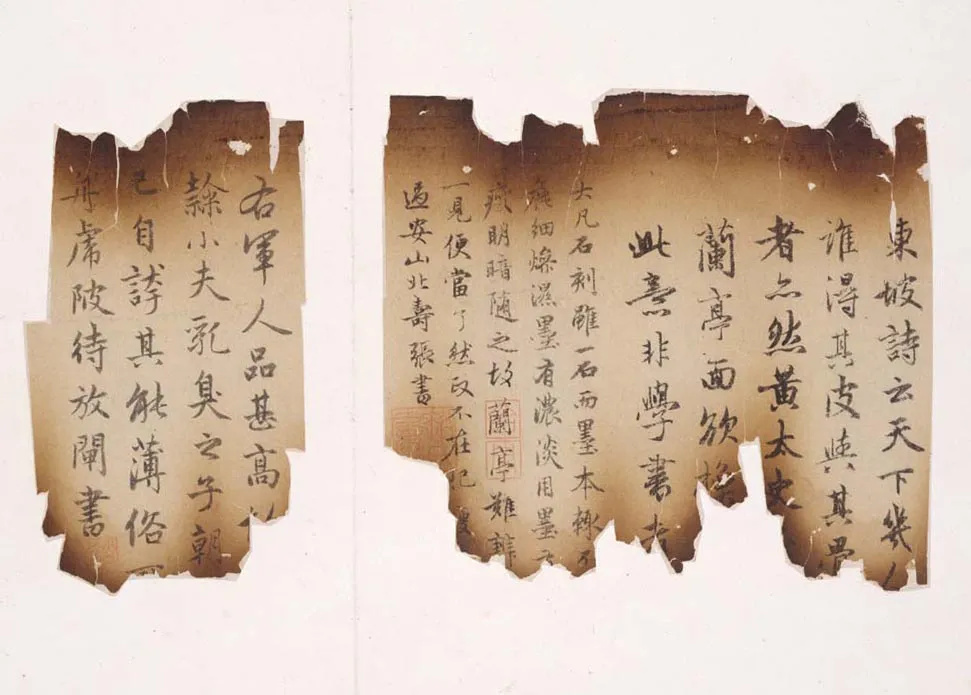 東坡詩云天下幾人
誰得其皮與其骨
者亦然黃太史
蘭亭面欲換
此意非學書者
大凡石刻雖一石而墨本輒不
細燥濕墨有濃淡用墨
瘦明暗隨之故蘭亭難辨
一見便當了然政不在肥瘦
過安山北壽張書
右軍人品甚高故
隸小夫乳臭之子朝
已自誇其能薄俗可
舟虎陂待放閘書